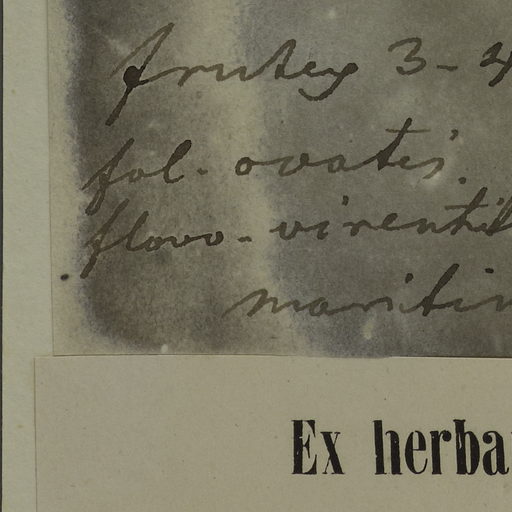 frutex 3-4
fol. ovatis.
flavo-virentib
maritim
Ex herba